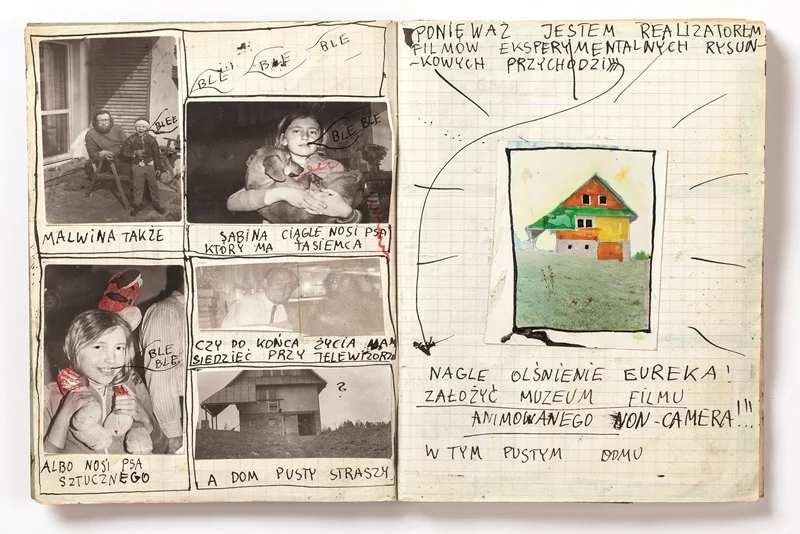 BLEE
MALWINA TAKŻE
BLE BLE BLE
BLE BLE
SABINA CIĄGLE NOSI PSA
KTÓRY MA TASIEMCA
BLE
BLE
ALBO NOSI PSA
SZTUCZNEGO
CZY DO KOŃCA ŻYCIA MAM
SIEDZIEĆ PRZY TELEWIZORZE
?
A DOM PUSTY STRASZY
PONIEWAŻ JESTEM REALIZATOREM
FILMÓW EKSPERYMENTALNYCH RYSUN-
-KOWYCH PRZYCHODZI!!!
NAGLE OLŚNIENIE EUREKA!
ZAŁOŻYĆ MUZEUM FILMU
ANIMOWANEGO NON-CAMERA!!!
W TYM PUSTYM DOMU